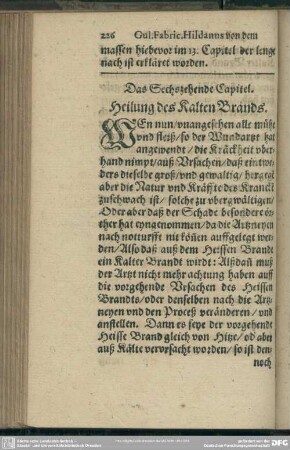 226 Gul: Fabric. Hildanus von dem
massen hiebevor im 13. Capitel der lenge
nach ist erkläret worden.
Das Sechszehende Capitel.
Heilung des Kalten Brands.
WEn nun / vnangesehen alle mühe
vnd fleiß / so der Wundartzt hat
angewendt / die Kräckheit vber-
hand nimpt / auß Vrsachen / daß eintwe-
ders dieselbe groß / vnd gewaltig / hergegē
aber die Natur vnd Kräffte des Krancken
zu schwach ist / solche zu vbergwältigen /
Oder aber daß der Schade besondere ör-
ther hat eyngenommen / da die Artzneyen
nach notturfft nit können auffgelegt wer-
den / Also daß auß dem Heissen Brandt
ein Kalter Brandt wirdt: Alßdañ muß
der Artzt nicht mehr achtung haben auff
die vorgehende Vrsachen des Heissen
Brandts / oder denselben nach die Artz-
neyen vnd den Proceß veränderen / vnd
anstellen. Dann es seye der vorgehende
Heisse Brand gleich von Hitze / od aber
auß Kälte vervrsacht worden / so ist den-
noch